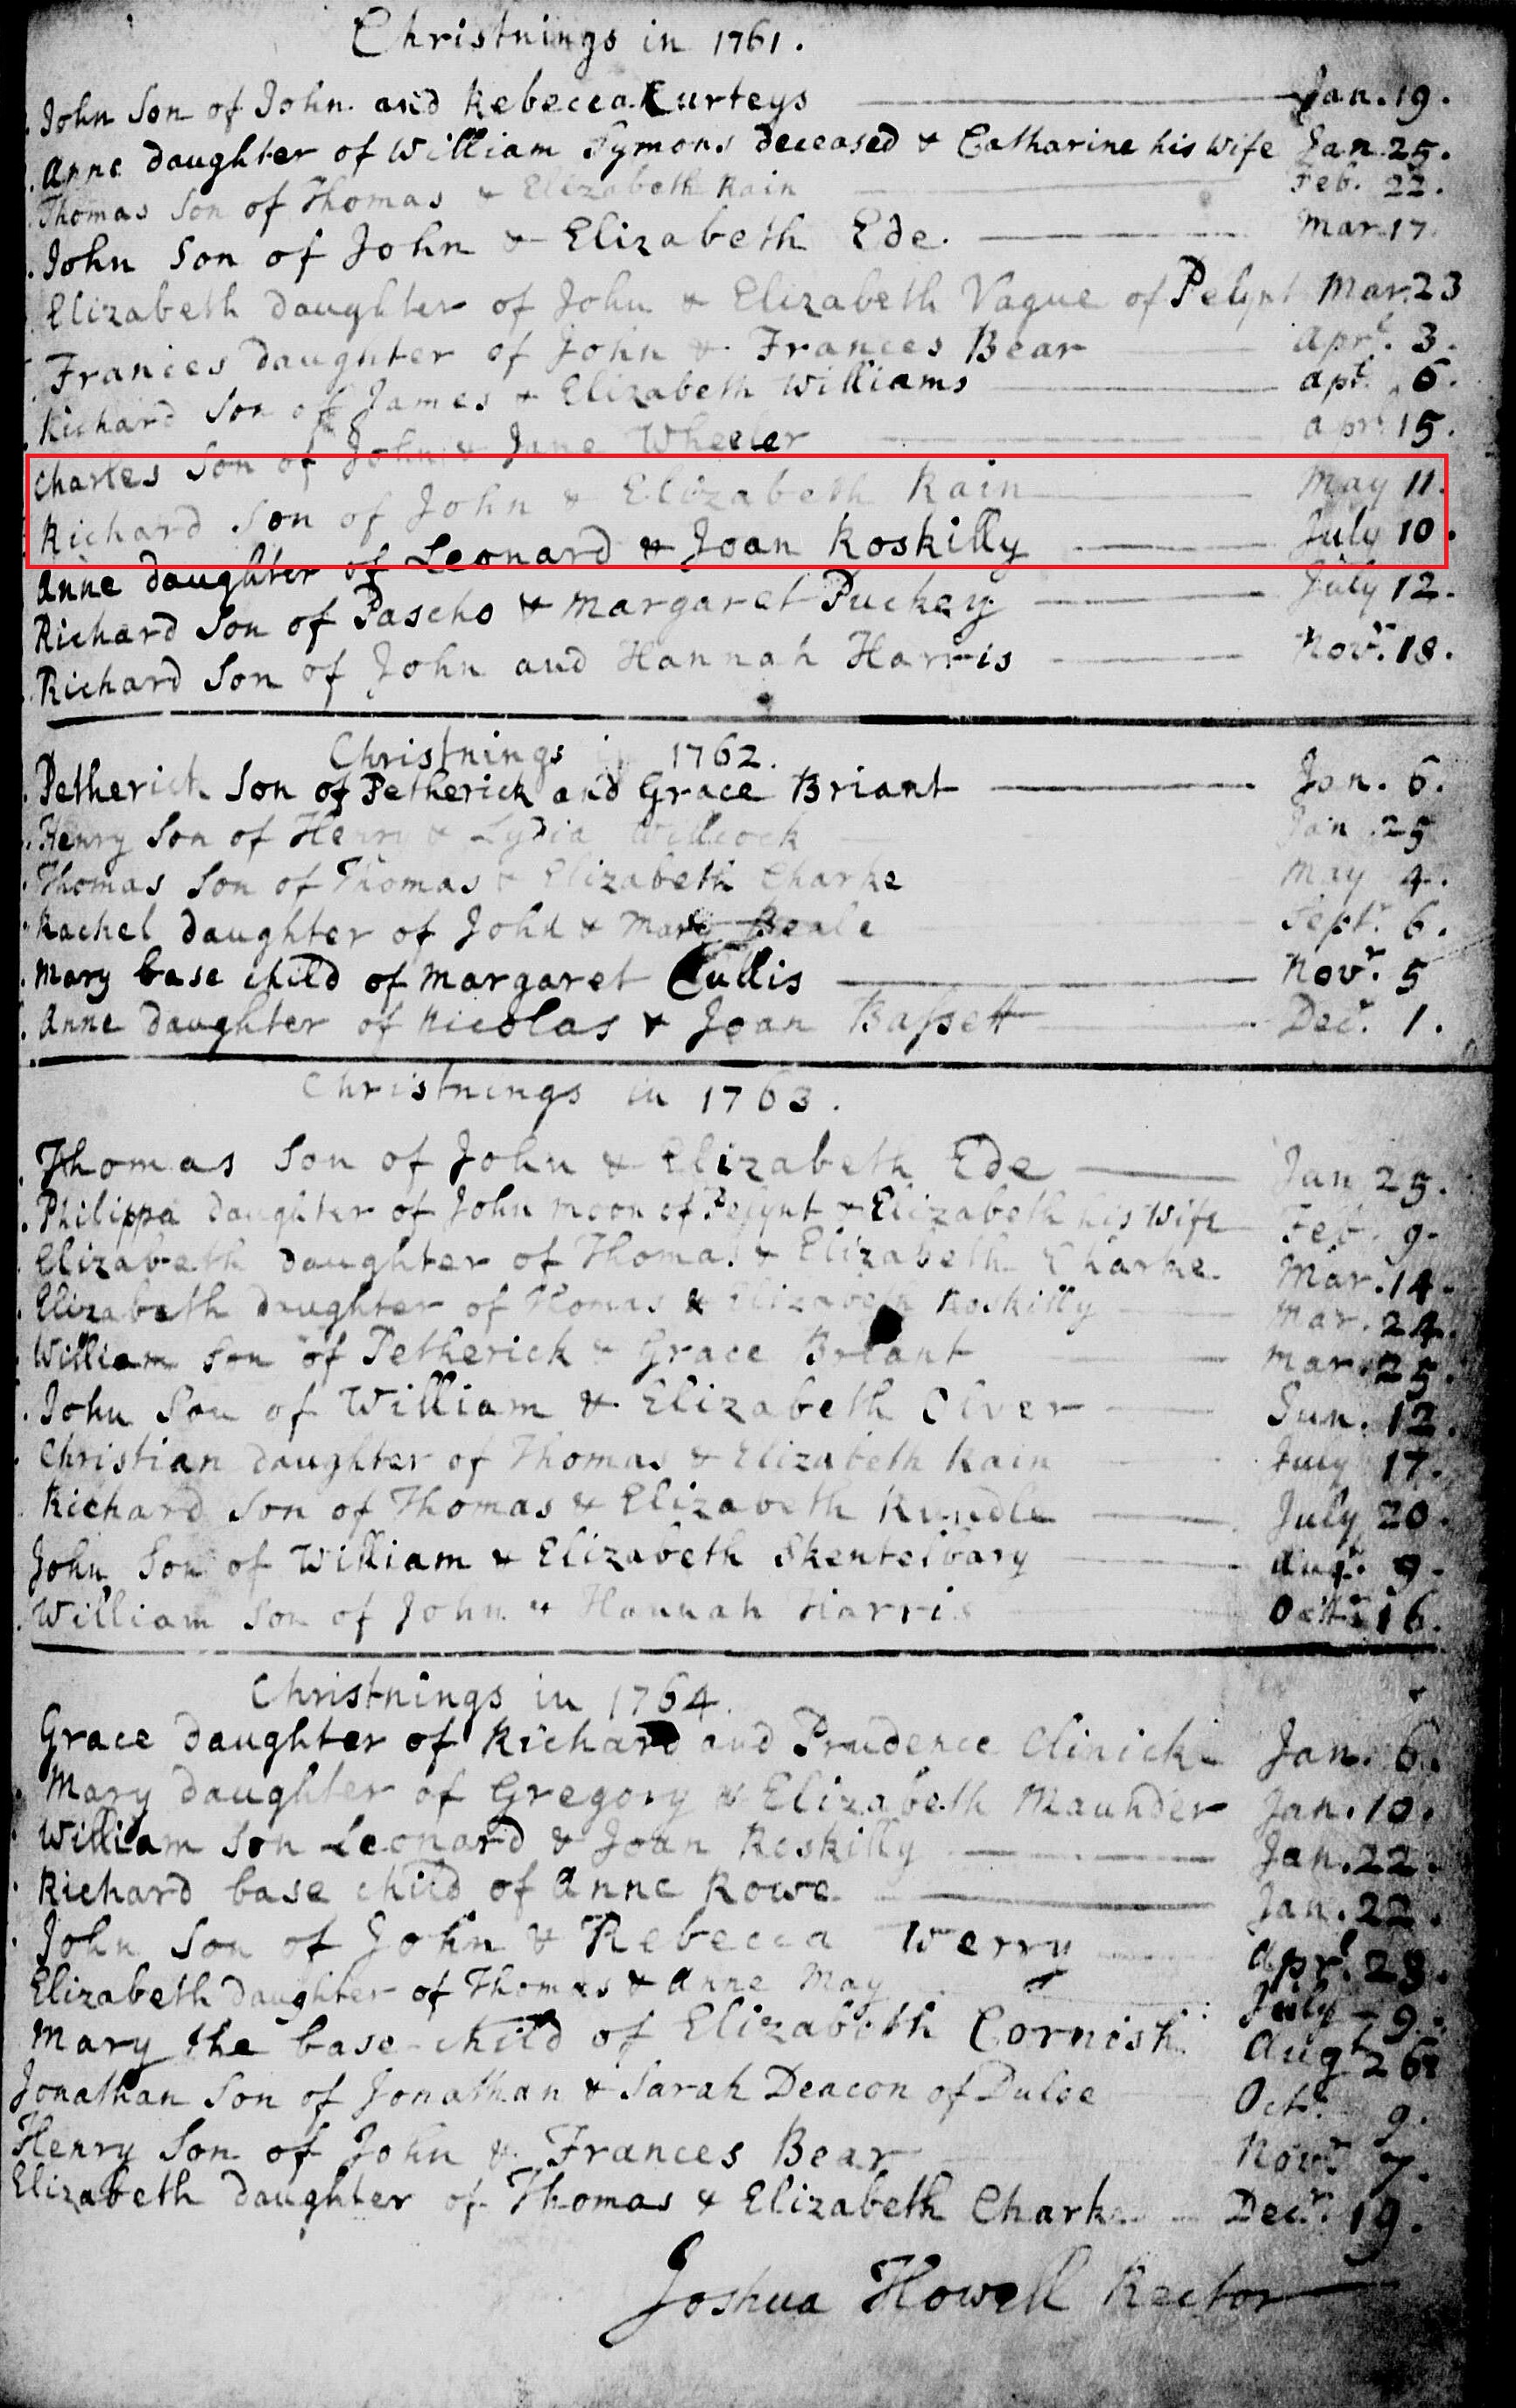 Christnings in 1761.
John Son of John and Rebecca Curteys Jan. 19.
Anne daughter of William Symons deceased & Catharine his wife Jan. 25.
Thomas Son of Thomas & Elizabeth Rain Feb. 22.
John Son of John & Elizabeth Ede. Mar. 17.
Elizabeth daughter of John & Elizabeth Vague of Pelynt Mar. 23
Frances daughter of John & Frances Bear Aprl. 3.
Richard Son of James & Elizabeth Williams apl. 6.
Charles Son of John & Jane Wheeler apr. 15.
Richard Son of John & Elizabeth Rain May 11.
Anne daughter of Leonard & Joan Roskilly July 10.
Richard Son of Pascho & Margaret Puckey July 12.
Richard Son of John and Hannah Harris Novr. 18.
Christnings in 1762.
Petherick Son of Petherick and Grace Briant Jan. 6.
Henry Son of Henry & Lydia Willcock Jan. 25
Thomas Son of Thomas & Elizabeth Charke May 4.
Rachel daughter of John & Mary Beale Septr. 6.
Mary base child of Margaret Cullis Novr. 5
Anne daughter of Nicolas & Joan Bassett Decr. 1.
Christnings in 1763.
Thomas Son of John & Elizabeth Ede Jan 25.
Philippa daughter of John Moon of Pelynt & Elizabeth his Wife Feb. 9.
Elizabeth daughter of Thomas & Elizabeth Charke. Mar. 14.
Elizabeth daughter of Thomas & Elizabeth Roskilly Mar. 24.
William Son of Petherick & Grace Briant Mar. 25.
John Son of William & Elizabeth Olver Jun. 12.
Christian daughter of Thomas & Elizabeth Rain July 17.
Richard Son of Thomas & Elizabeth Rundle July 20.
John Son of William & Elizabeth Skentelbary Augt. 9.
William Son of John & Hannah Harris Octr. 16.
Christnings in 1764.
Grace daughter of Richard and Prudence Clinick Jan. 6.
Mary daughter of Gregory & Elizabeth Maunder Jan. 10.
William Son Leonard & Joan Roskilly Jan. 22.
Richard base child of Anne Rowe Jan. 22.
John Son of John & Rebecca Werry Aprl. 23.
Elizabeth daughter of Thomas & Anne May July 9.
Mary the base child of Elizabeth Cornish Augt 26
Jonathan Son of Jonathan & Sarah Deacon of Duloe Octr. 9.
Henry Son of John & Frances Bear Novr. 7.
Elizabeth daughter of Thomas & Elizabeth Charke Decr. 19.
Joshua Howell Rector